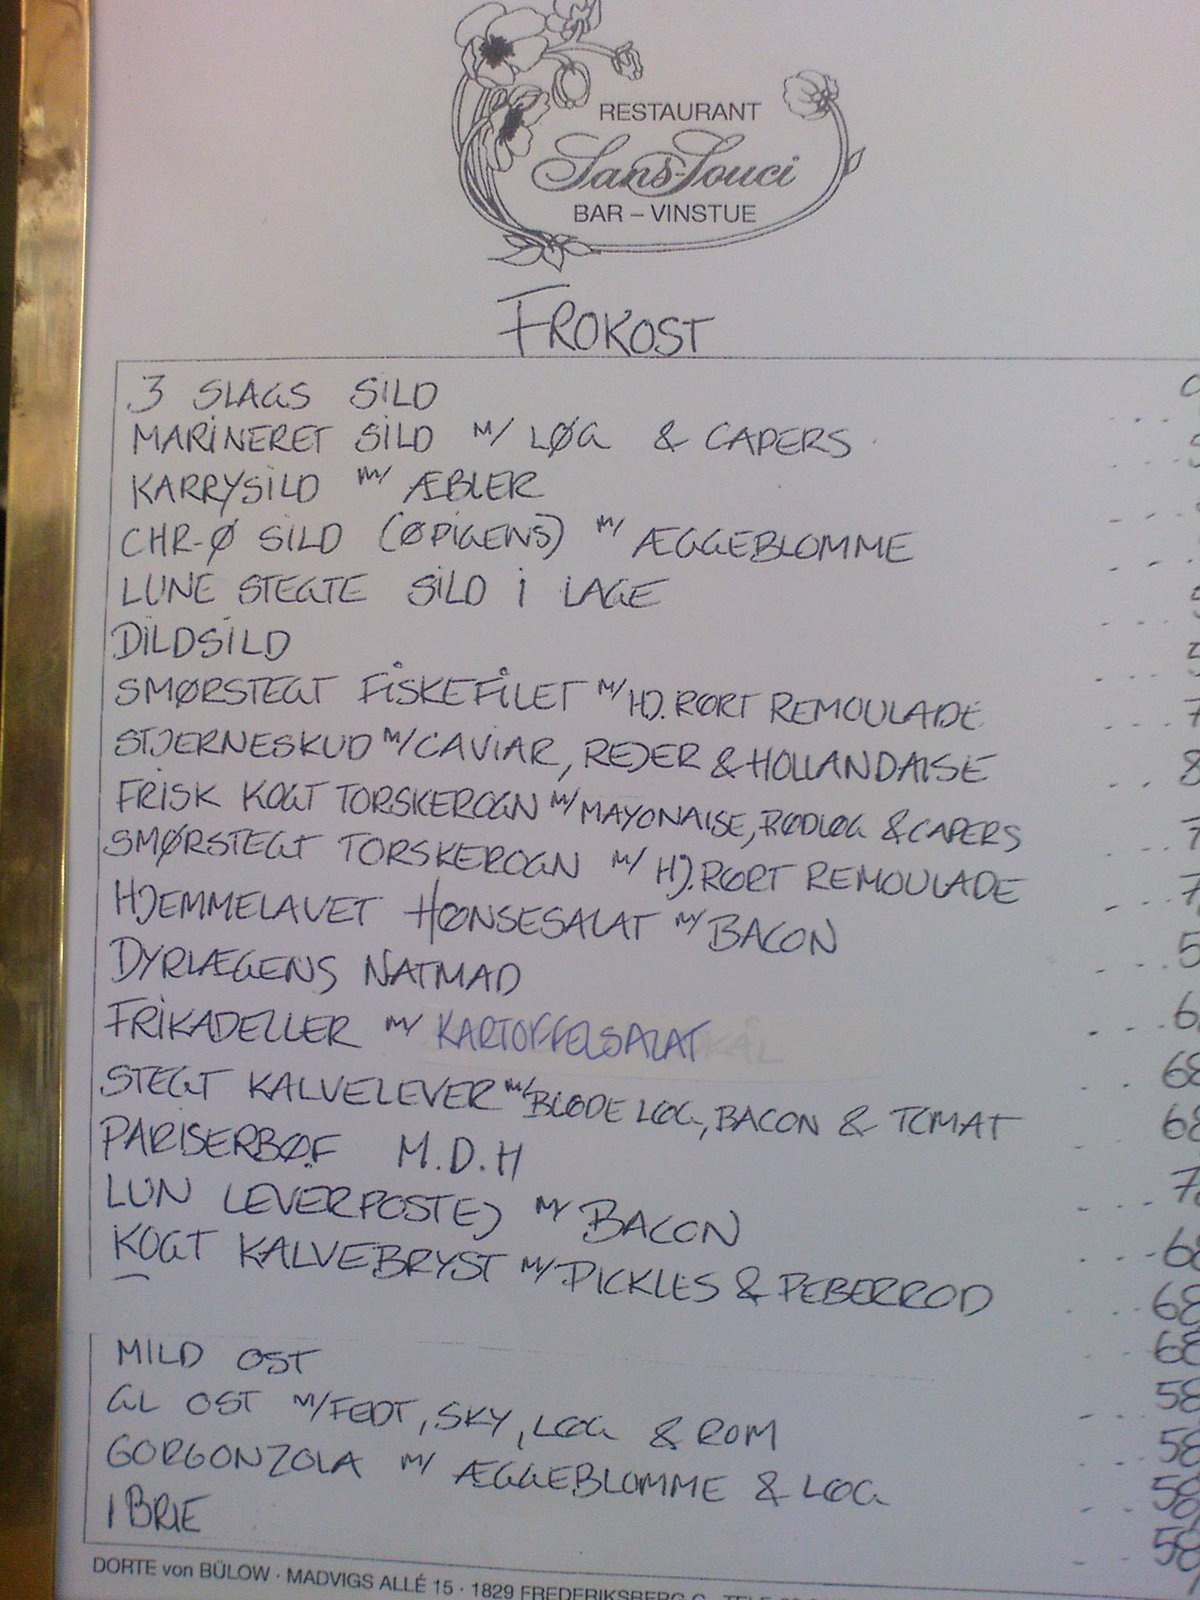 RESTAURANT
Sans-Souci
BAR – VINSTUE
FROKOST
3 SLAGS SILD
MARINERET SILD M/ LØG & CAPERS
KARRYSILD M/ ÆBLER
CHR-Ø SILD (ØPIGENS) M/ ÆGGEBLOMME
LUNE STEGTE SILD I LAGE
DILDSILD
SMØRSTEGT FISKEFILET M/ HJ. RØRT REMOULADE
STJERNESKUD M/ CAVIAR, REJER & HOLLANDAISE
FRISK KOGT TORSKEROGN M/ MAYONAISE, RØDLØG & CAPERS
SMØRSTEGT TORSKEROGN M/ HJ. RØRT REMOULADE
HJEMMELAVET HØNSESALAT M/ BACON
DYRLÆGENS NATMAD
FRIKADELLER M/ KARTOFFELSALAT
STEGT KALVELEVER M/ BLØDE LØG, BACON & TOMAT
PARISERBØF M.D.H
LUN LEVERPOSTEJ M/ BACON
KOGT KALVEBRYST M/ PICKLES & PEBERROD
68
68
68
68
68
MILD OST
GL OST M/ FEDT, SKY, LØG & ROM 58
GORGONZOLA M/ ÆGGEBLOMME & LØG 58
1 BRIE 58
58
DORTE von BÜLOW · MADVIGS ALLÉ 15 · 1829 FREDERIKSBERG C